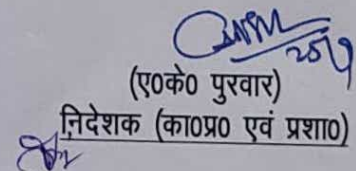 (ए०के० पुरवार)
निदेशक (का०प्र० एवं प्रशा०)